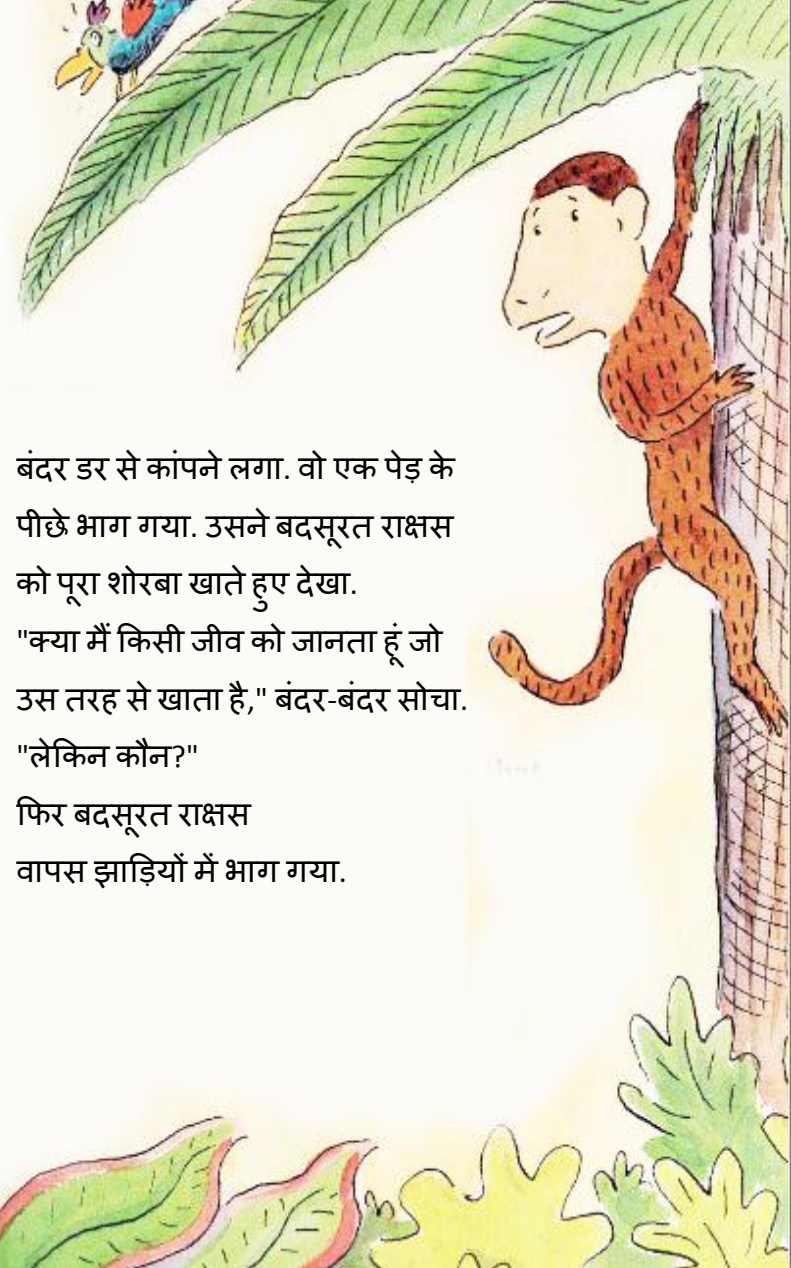 बंदर डर से कांपने लगा. वो एक पेड़ के
पीछे भाग गया. उसने बदसूरत राक्षस
को पूरा शोरबा खाते हुए देखा.
"क्या मैं किसी जीव को जानता हूं जो
उस तरह से खाता है," बंदर-बंदर सोचा.
"लेकिन कौन?"
फिर बदसूरत राक्षस
वापस झाड़ियों में भाग गया.